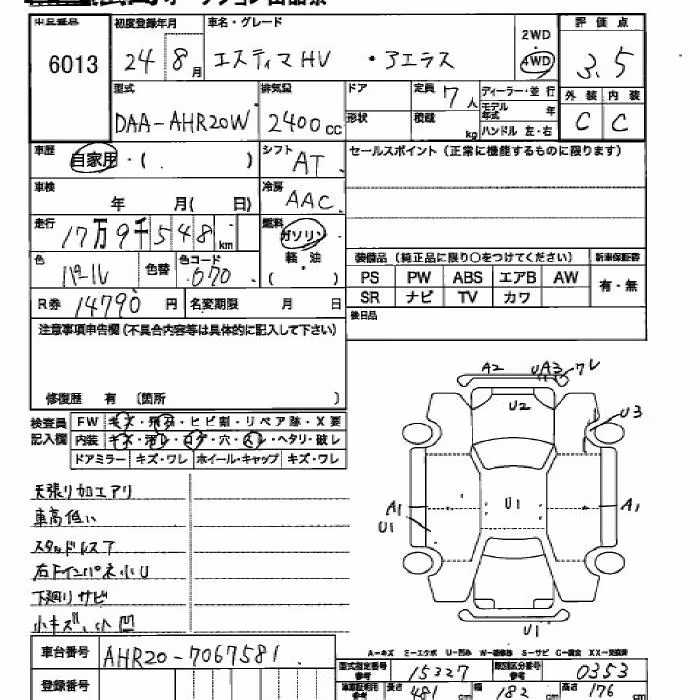 出品番号 初度登録年月 車名・グレード 2WD 評価点
6013 24 8月 エスティマHV ・アエラス 4WD 3.5
型式 排気量 ドア 定員 7人 ディーラー・並行 外装 内装
DAA-AHR20W 2400cc 形状 積載 kg モデル年式 年 C C
ハンドル 左・右
車歴 自家用・( ) シフト AT セールスポイント (正常に機能するものに限ります)
車検 年 月( 日) 冷房 AAC
走行 17万9千548km 燃料 ガソリン
軽・油
( )
色 パール 色替 色コード 070 装備品 (純正品に限り○をつけてください) 新車保証書
PS PW ABS エアB AW 有・無
R券 14790円 名変期限 月 日 SR ナビ TV カワ
後日品
注意事項申告欄(不具合内容等は具体的に記入して下さい)
修復歴 有 〔箇所 〕
検査員記入欄 FW キズ・飛石・ヒビ割・リペア跡・X要
内装 キズ・汚レ・コゲ・穴・スレ・ヘタリ・破レ
ドアミラー キズ・ワレ ホイール・キャップ キズ・ワレ
A2 UA3 ワレ
U2
U3
A1 U1 A1
U1
U1
天張り加工アリ
車高低い
スタッドレスア
右Fインパネ小U
下廻りサビ
小キズ、小凹
A-キズ E-エクボ U-凹み W-補修跡 S-サビ C-腐食 XX-交換済
車台番号 AHR20-7067581
型式指定番号 15327 類別区分番号 0353
登録番号 車庫証明用参考 長さ 481cm 幅 182cm 高さ 176cm